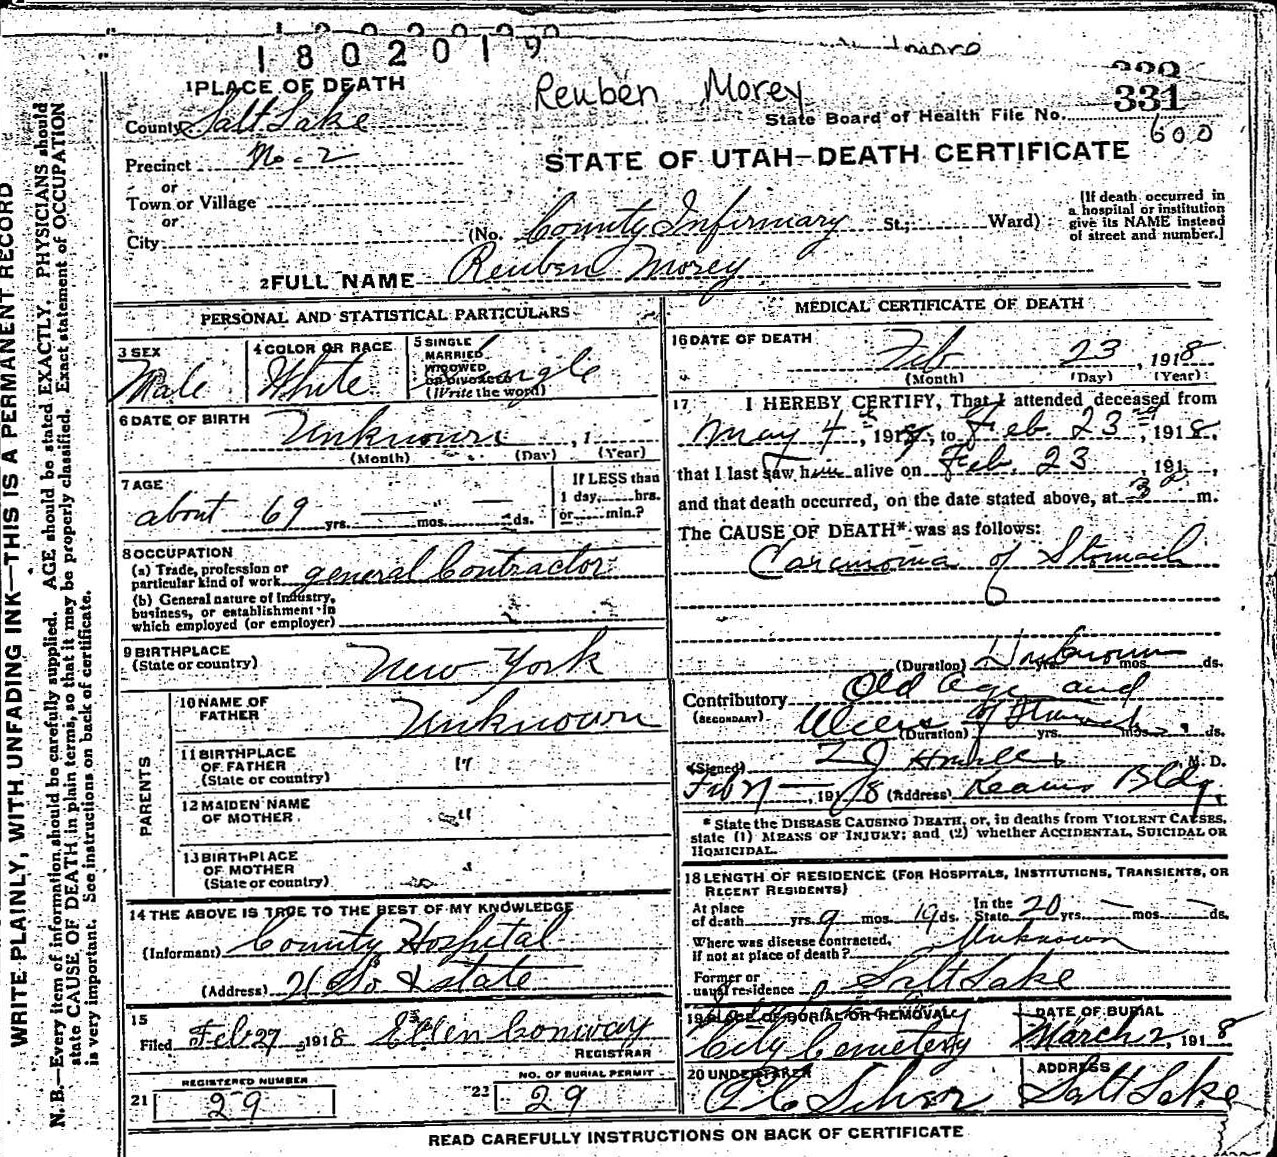 1802019
Reuben Morey
331
600
1 PLACE OF DEATH
County Salt Lake
State Board of Health File No.
Precinct No-2
STATE OF UTAH—DEATH CERTIFICATE
or
Town or Village
or
City
(No. County Infirmary St.; Ward)
[If death occurred in a hospital or institution give its NAME instead of street and number.]
2 FULL NAME Reuben Morey
PERSONAL AND STATISTICAL PARTICULARS
3 SEX
Male
4 COLOR OR RACE
White
5 SINGLE
MARRIED
WIDOWED
OR DIVORCED
(Write the word)
Single
6 DATE OF BIRTH
Unknown , 1
(Month) (Day) (Year)
7 AGE
about 69 yrs. — mos. — ds.
If LESS than
1 day, hrs.
or min.?
8 OCCUPATION
(a) Trade, profession or
particular kind of work general Contractor
(b) General nature of Industry,
business, or establishment in
which employed (or employer)
9 BIRTHPLACE
(State or country) New York
PARENTS
10 NAME OF
FATHER Unknown
11 BIRTHPLACE
OF FATHER "
(State or country)
12 MAIDEN NAME
OF MOTHER "
13 BIRTHPLACE
OF MOTHER
(State or country)
14 THE ABOVE IS TRUE TO THE BEST OF MY KNOWLEDGE
(Informant) County Hospital
(Address) 21 So & State
15
Filed Feb 27 1918 Ellen Conway
REGISTRAR
REGISTERED NUMBER
21 29
NO. OF BURIAL PERMIT
22 29
MEDICAL CERTIFICATE OF DEATH
16 DATE OF DEATH
Feb 23, 1918
(Month) (Day) (Year)
17 I HEREBY CERTIFY, That I attended deceased from
May 4th, 191 , to Feb. 23rd, 1918,
that I last saw him alive on Feb. 23, 191 ,
and that death occurred, on the date stated above, at 3 m.
The CAUSE OF DEATH* was as follows:
Carcinoma of Stomach
(Duration) Unknown yrs. mos. ds.
Contributory Old age and
(SECONDARY) Ulcers of Stomach
(Duration) yrs. mos. ds.
(Signed) M. D.
Feb 27 1918 (Address) Kearns Bldg.
* State the DISEASE CAUSING DEATH, or, in deaths from VIOLENT CAUSES,
state (1) MEANS OF INJURY; and (2) whether ACCIDENTAL, SUICIDAL OR
HOMICIDAL.
18 LENGTH OF RESIDENCE (FOR HOSPITALS, INSTITUTIONS, TRANSIENTS, OR
RECENT RESIDENTS)
At place
of death yrs. 9 mos. 19 ds.
In the
State 20 yrs. — mos. — ds.
Where was disease contracted,
if not at place of death? Unknown
Former or
usual residence Salt Lake
19 PLACE OF BURIAL OR REMOVAL
City Cemetery
DATE OF BURIAL
March 2, 1918
20 UNDERTAKER
ADDRESS
Salt Lake
READ CAREFULLY INSTRUCTIONS ON BACK OF CERTIFICATE
WRITE PLAINLY, WITH UNFADING INK—THIS IS A PERMANENT RECORD
N. B.—Every item of information should be carefully supplied. AGE should be stated EXACTLY. PHYSICIANS should
state CAUSE OF DEATH in plain terms, so that it may be properly classified. Exact statement of OCCUPATION
is very important. See instructions on back of certificate.